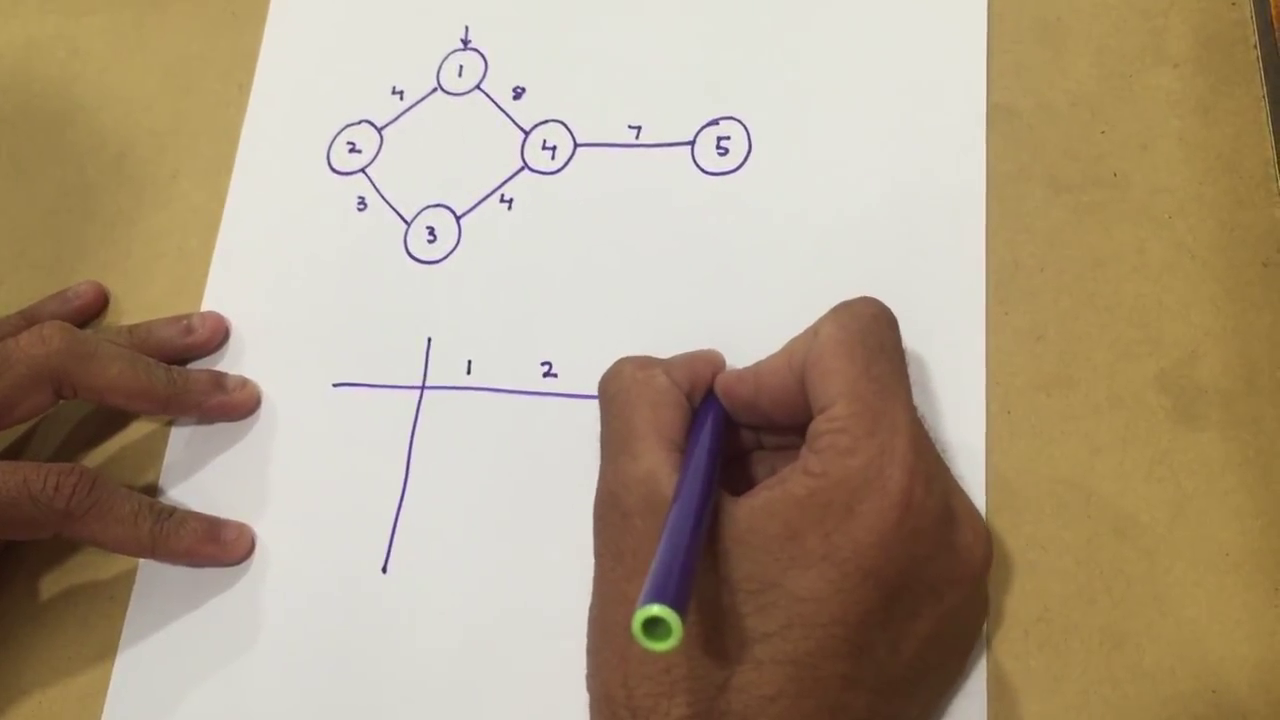 1
4 8
2 4 7 5
3 4
3
1 2